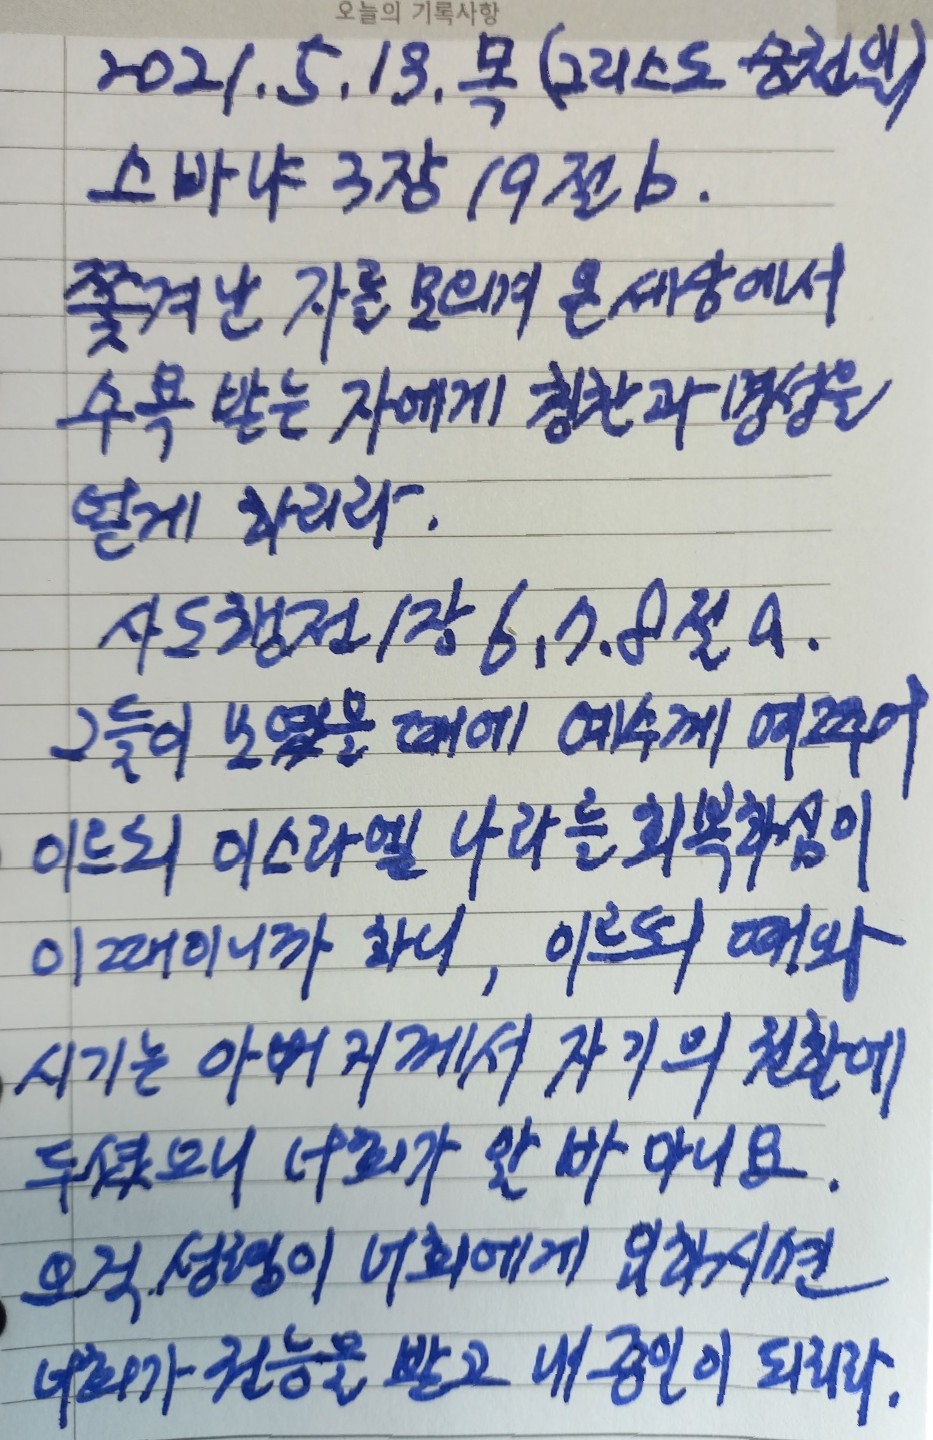 오늘의 기록사항
2021.5.13.목(그리스도 승천일)
스바냐 3장 19절b.
쫓겨난 자를 모의겨 온 세상에서
수욕 받는 자에게 칭찬과 명성을
얻게 하리라.
사도행전 1장 6,7.8절 a.
그들이 모였을 때에 예수께 여쭈어
이르되 이스라엘 나라를 회복하심이
이 때이니까 하니, 이르되 때와
시기는 아버지께서 자기의 권한에
두셨으니 너희가 알 바 아니요.
오직 성령이 너희에게 임하시면
너희가 권능을 받고 내 증인이 되리라.